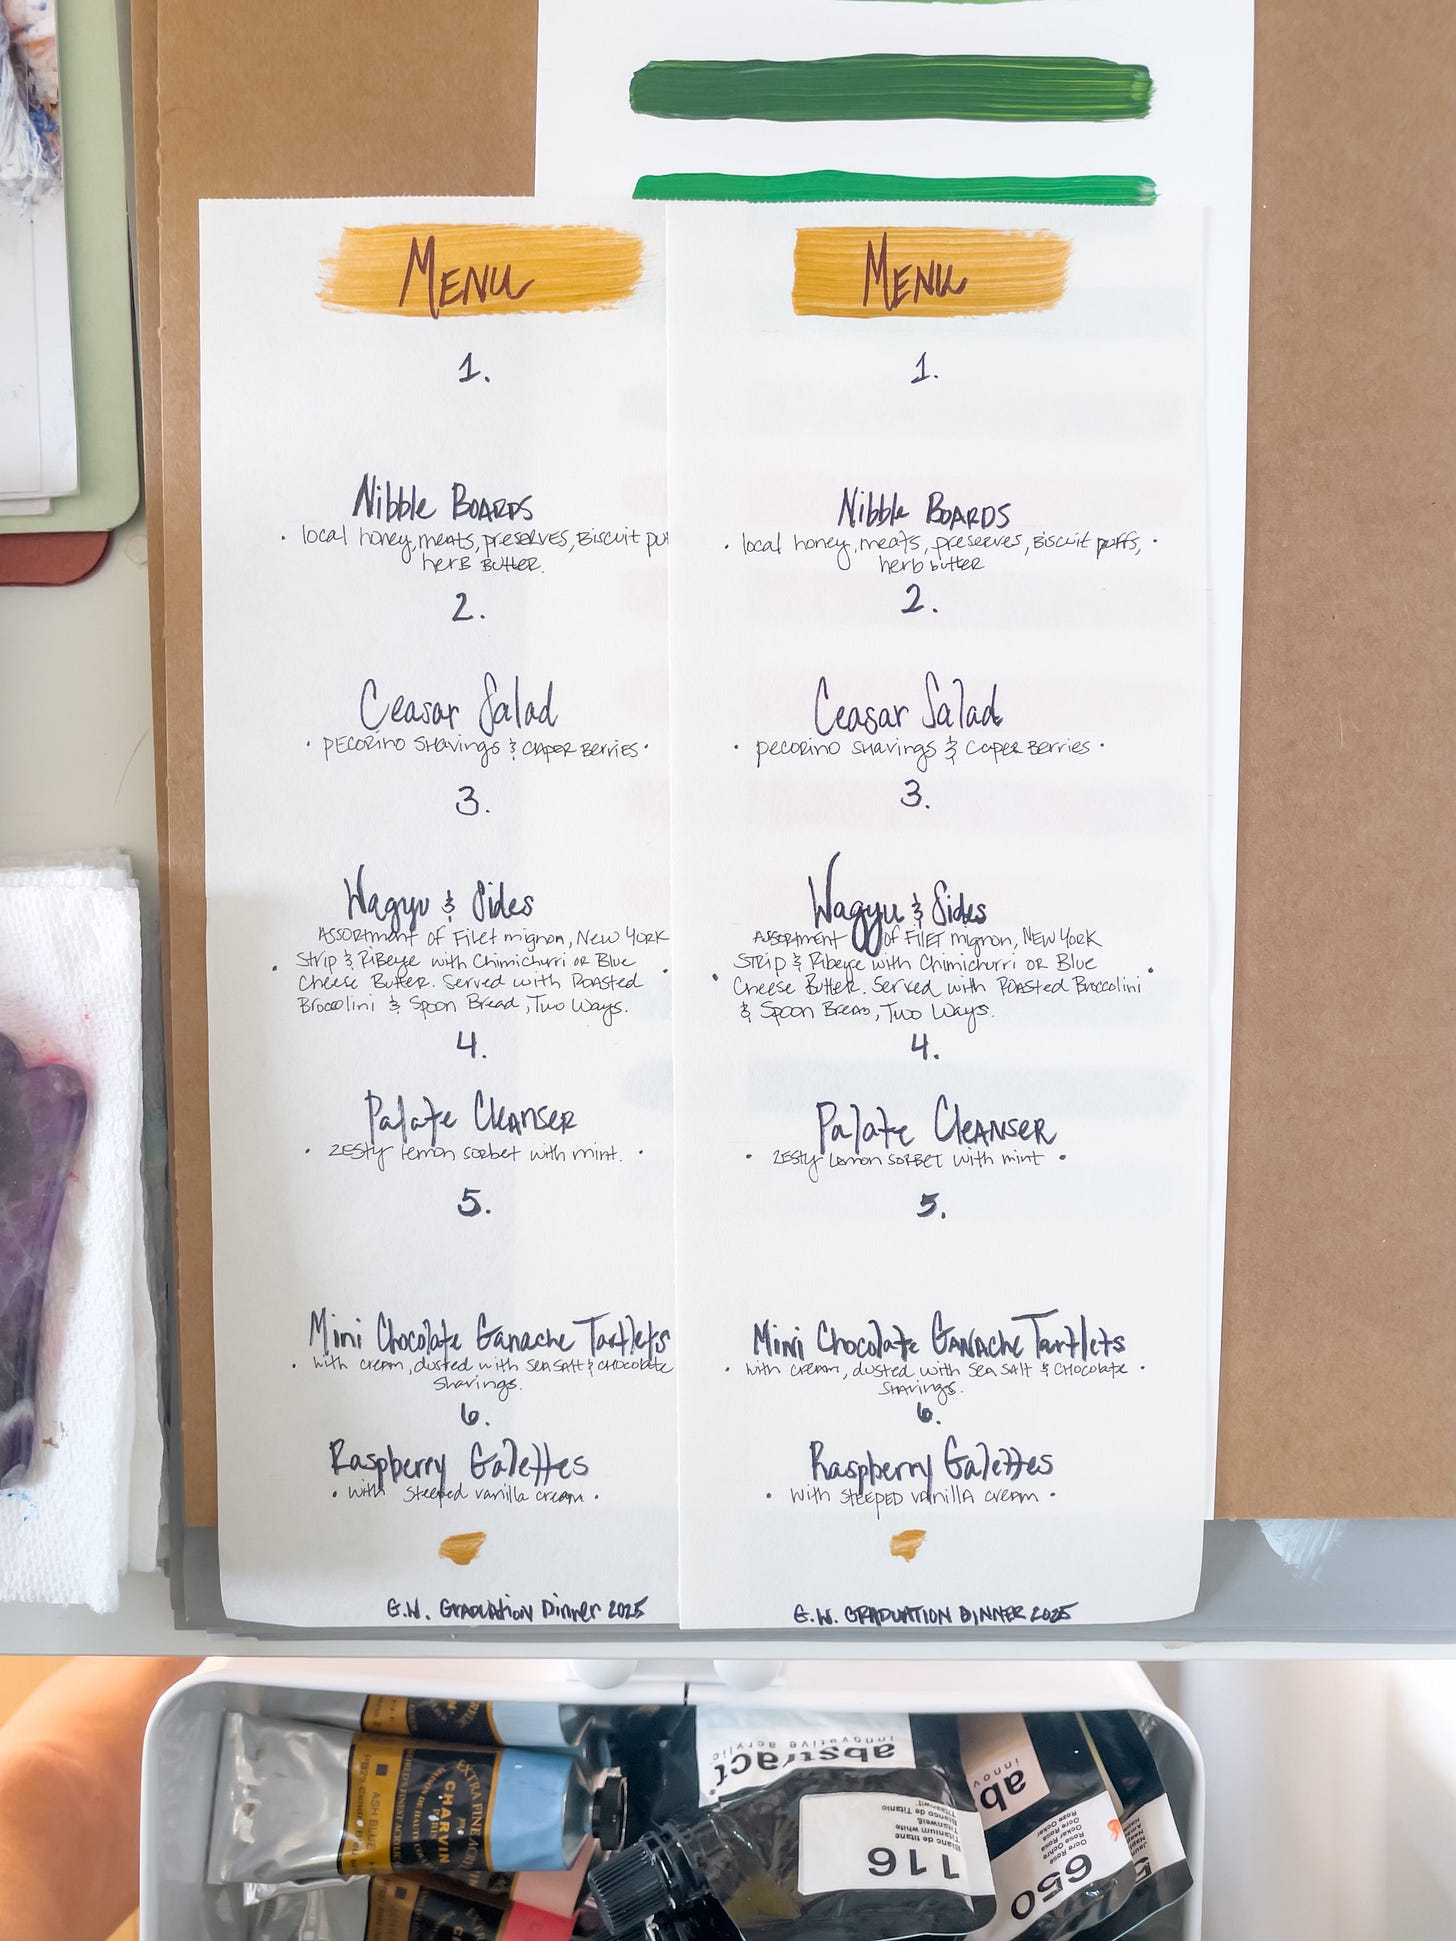 MENU
1.
Nibble BOARDS
· local honey, meats, preserves, Biscuit pu
herb Butter.
2.
Ceasar Salad
· pecorino shavings & caper Berries ·
3.
Wagyu & Sides
Assortment of Filet mignon, New York
Strip & Ribeye with Chimichurri or Blue
Cheese Butter. Served with Roasted
Broccolini & Spoon Bread, Two Ways.
4.
Palate Cleanser
· zesty lemon sorbet with mint. ·
5.
Mini Chocolate Ganache Tartlets
· with cream, dusted with sea salt & chocolate
shavings.
6.
Raspberry Galettes
· with steeped vanilla cream ·
G.W. Graduation Dinner 2025
MENU
1.
Nibble BOARDS
· local honey, meats, preserves, Biscuit puffs, ·
herb butter
2.
Ceasar Salad
· pecorino shavings & caper Berries ·
3.
Wagyu & Sides
Assortment of Filet mignon, New York
Strip & Ribeye with Chimichurri or Blue
Cheese Butter. Served with Roasted Broccolini
& Spoon Bread, Two Ways.
4.
Palate Cleanser
· zesty lemon sorbet with mint ·
5.
Mini Chocolate Ganache Tartlets
· with cream, dusted with sea salt & chocolate ·
shavings.
6.
Raspberry Galettes
· with steeped vanilla cream ·
G.W. GRADUATION DINNER 2025
EXTRA FINE
CHARVIN
PARIS
ASH BLUE
abstract
innovative acrylic
Blanc de titane
Titanium white
Titanweiß
Blanco de Titanio
116
ab
innov
Ocre Rose
Rose Ochre
650